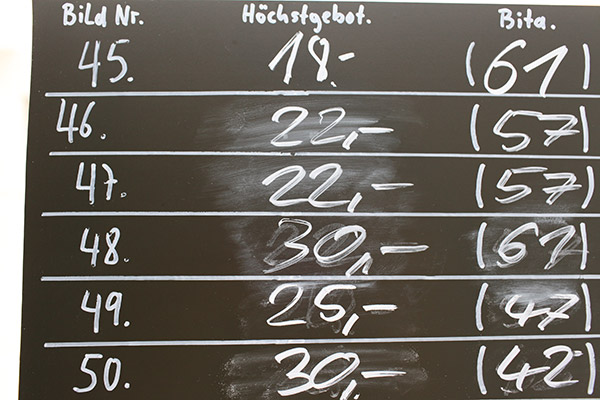 Bild Nr. Höchstgebot. Bita.
45. 18.- (61)
46. 22,- (57)
47. 22,- (57)
48. 30,- (61)
49. 25,- (47)
50. 30,- (42)